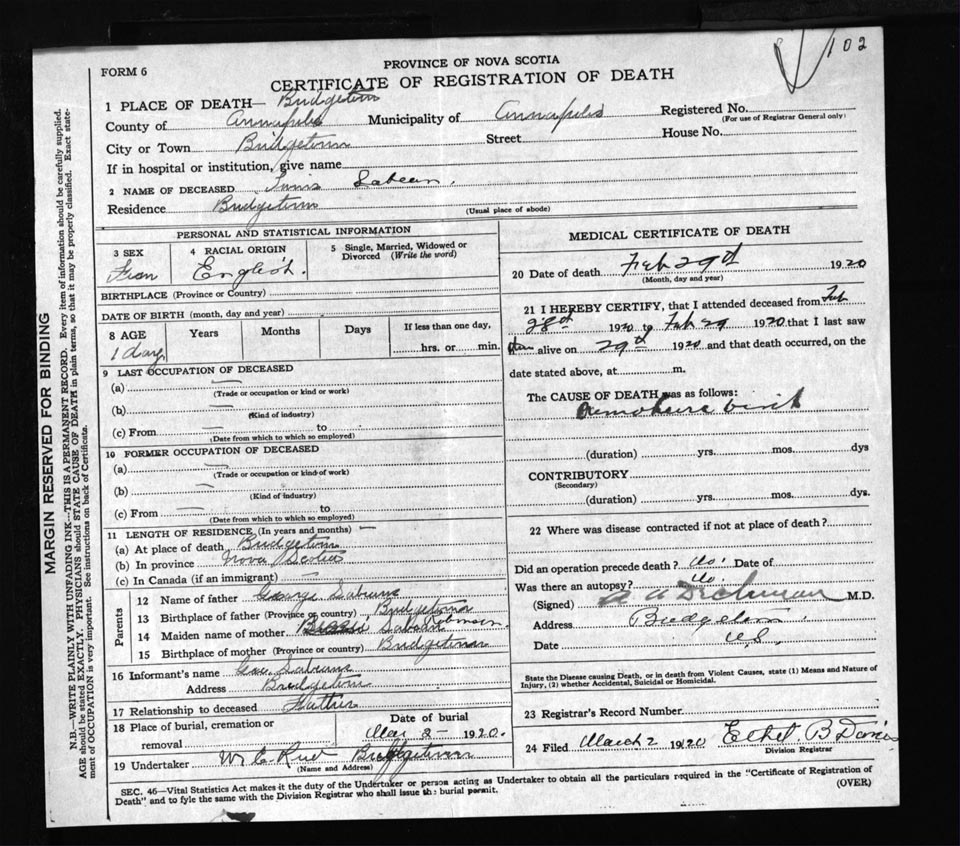 102
FORM 6
PROVINCE OF NOVA SCOTIA
CERTIFICATE OF REGISTRATION OF DEATH
1 PLACE OF DEATH— Bridgetown
County of Annapolis Municipality of Annapolis Registered No.
(For use of Registrar General only)
City or Town Bridgetown Street House No.
If in hospital or institution, give name
2 NAME OF DECEASED Sabean
Residence Bridgetown
(Usual place of abode)
PERSONAL AND STATISTICAL INFORMATION
3 SEX 4 RACIAL ORIGIN English 5 Single, Married, Widowed or Divorced (Write the word)
BIRTHPLACE (Province or Country)
DATE OF BIRTH (month, day and year)
8 AGE 1 day Years Months Days If less than one day, hrs. or min.
9 LAST OCCUPATION OF DECEASED
(a) —
(Trade or occupation or kind or work)
(b) —
(Kind of industry)
(c) From — to
(Date from which to which so employed)
10 FORMER OCCUPATION OF DECEASED
(a) —
(Trade or occupation or kind of work)
(b) —
(Kind of industry)
(c) From — to
(Date from which to which so employed)
11 LENGTH OF RESIDENCE (In years and months) —
(a) At place of death Bridgetown
(b) In province Nova Scotia
(c) In Canada (if an immigrant) —
Parents
12 Name of father George Sabeans
13 Birthplace of father (Province or country) Bridgetown
14 Maiden name of mother Robinson
15 Birthplace of mother (Province or country) Bridgetown
16 Informant's name Geo. Sabeans
Address Bridgetown
17 Relationship to deceased Father
18 Place of burial, cremation or removal Date of burial Mar 2 - 1920.
19 Undertaker Bridgetown
(Name and Address)
MEDICAL CERTIFICATE OF DEATH
20 Date of death Feb 29th 1920
(Month, day and year)
21 I HEREBY CERTIFY, that I attended deceased from Feb
28th 1920 to Feb 29 1920 that I last saw
alive on 29th 1920 and that death occurred, on the
date stated above, at m.
The CAUSE OF DEATH was as follows:
Premature birth
(duration) yrs. mos. dys
CONTRIBUTORY
(Secondary)
(duration) yrs. mos. dys.
22 Where was disease contracted if not at place of death?
Did an operation precede death? No. Date of
Was there an autopsy? No.
(Signed) M.D.
Address Bridgetown
Date N.S.
State the Disease causing Death, or in death from Violent Causes, state (1) Means and Nature of
Injury, (2) whether Accidental, Suicidal or Homicidal.
23 Registrar's Record Number
24 Filed March 2 1920 Ethel B
Division Registrar
SEC. 46—Vital Statistics Act makes it the duty of the Undertaker or person acting as Undertaker to obtain all the particulars required in the "Certificate of Registration of
Death" and to fyle the same with the Division Registrar who shall issue the burial permit.
(OVER)
MARGIN RESERVED FOR BINDING
N.B.—WRITE PLAINLY WITH UNFADING INK—THIS IS A PERMANENT RECORD. Every item of information should be carefully supplied.
AGE should be stated EXACTLY. PHYSICIANS should STATE CAUSE OF DEATH in plain terms, so that it may be properly classified. Exact state-
ment of OCCUPATION is very important. See instructions on back of Certificate.